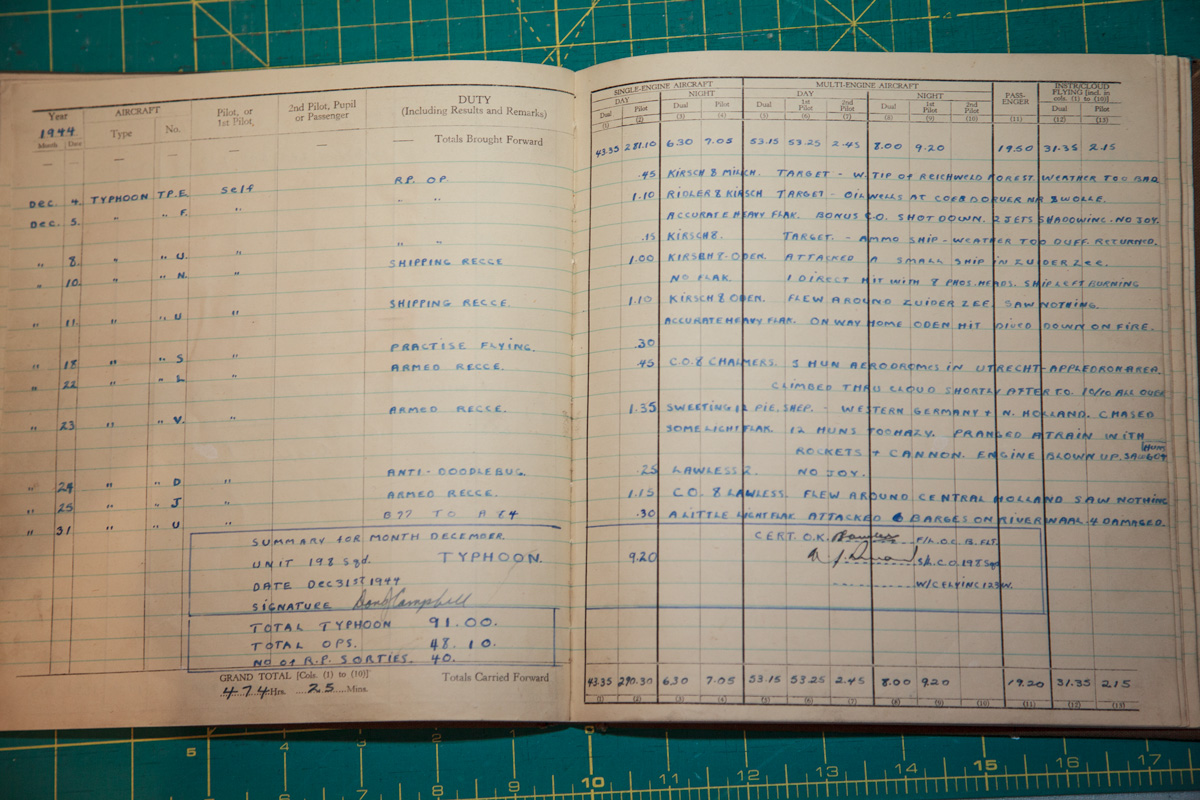 Year 1944
AIRCRAFT
Pilot, or 1st Pilot
2nd Pilot, Pupil or Passenger
DUTY (Including Results and Remarks)
SINGLE-ENGINE AIRCRAFT
MULTI-ENGINE AIRCRAFT
PASS-ENGER
INSTR/CLOUD FLYING [Incl. in cols. (1) to (10)]
Month Date Type No.
DAY NIGHT DAY NIGHT
Dual Pilot Dual Pilot Dual 1st Pilot 2nd Pilot Dual 1st Pilot 2nd Pilot Dual Pilot
(1) (2) (3) (4) (5) (6) (7) (8) (9) (10) (11) (12) (13)
— — — — — — Totals Brought Forward 43.35 281.10 6.30 7.05 53.15 53.25 2.45 8.00 9.20 19.50 31.35 2.15
DEC. 4. TYPHOON T.P.E. Self R.P. OP. .45 KIRSCH 8 MILCH. TARGET - W. TIP OF REICHWELD FOREST. WEATHER TOO BAD
DEC. 5. " " F. " " " 1.10 RIDLER & KIRSCH TARGET - OIL WELLS AT NR ZWOLLE.
ACCURATE HEAVY FLAK. BONUS C.O. SHOT DOWN. 2 JETS SHADOWING. NO JOY.
" 8. " " U. " " " .15 KIRSCH 8. TARGET. - AMMO SHIP - WEATHER TOO DUFF. RETURNED.
" 10. " " N. " SHIPPING RECCE 1.00 KIRSCH 8 ODEN. ATTACKED A SMALL SHIP IN ZUIDER ZEE.
NO FLAK. 1 DIRECT HIT WITH 8 PHOS. HEADS. SHIP LEFT BURNING
" 11. " " U " SHIPPING RECCE. 1.10 KIRSCH 8 ODEN. FLEW AROUND ZUIDER ZEE. SAW NOTHING.
ACCURATE HEAVY FLAK. ON WAY HOME ODEN HIT DIVED DOWN ON FIRE.
" 18 " " S " PRACTISE FLYING. .30
" 22 " " L " ARMED RECCE. .45 C.O. 8 CHALMERS. 3 HUN AERODROMES IN UTRECHT - APPLEDROM AREA.
CLIMBED THRU CLOUD SHORTLY AFTER T.O. 10/10 ALL OVER
" 23 " " V. " ARMED RECCE. 1.35 SWEETING 12 PIE. SHEP. - WESTERN GERMANY + N. HOLLAND. CHASED
SOME LIGHT FLAK. 12 HUNS TOO HAZY. PRANGED A TRAIN WITH
ROCKETS + CANNON. ENGINE BLOWN UP. SAW 60+ HUNS
" 24 " " D " ANTI-DOODLEBUG. .25 LAWLESS 2. NO JOY.
" 25 " " J " ARMED RECCE. 1.15 C.O. 8 LAWLESS. FLEW AROUND CENTRAL HOLLAND SAW NOTHING
" 31 " " U " B77 TO A84 .30 A LITTLE LIGHT FLAK ATTACKED 6 BARGES ON RIVER WAAL. 4 DAMAGED.
SUMMARY FOR MONTH DECEMBER. CERT. O.K. F/L. O.C. B. FLT.
UNIT 198 Sqd. TYPHOON. 9.20 S/L. C.O. 198 Sqd
DATE DEC 31ST 1944 W/C FLYING 123 W.
SIGNATURE Don J Campbell
TOTAL TYPHOON 91.00.
TOTAL OPS. 48.10.
NO of R.P. SORTIES. 40.
GRAND TOTAL [Cols. (1) to (10)] Totals Carried Forward 43.35 290.30 6.30 7.05 53.15 53.25 2.45 8.00 9.20 19.20 31.35 2.15
474 Hrs. 25 Mins.
(1) (2) (3) (4) (5) (6) (7) (8) (9) (10) (11) (12) (13)
5 4 3 2 1 0 11 12 13 14 15 16 17
8 9 10